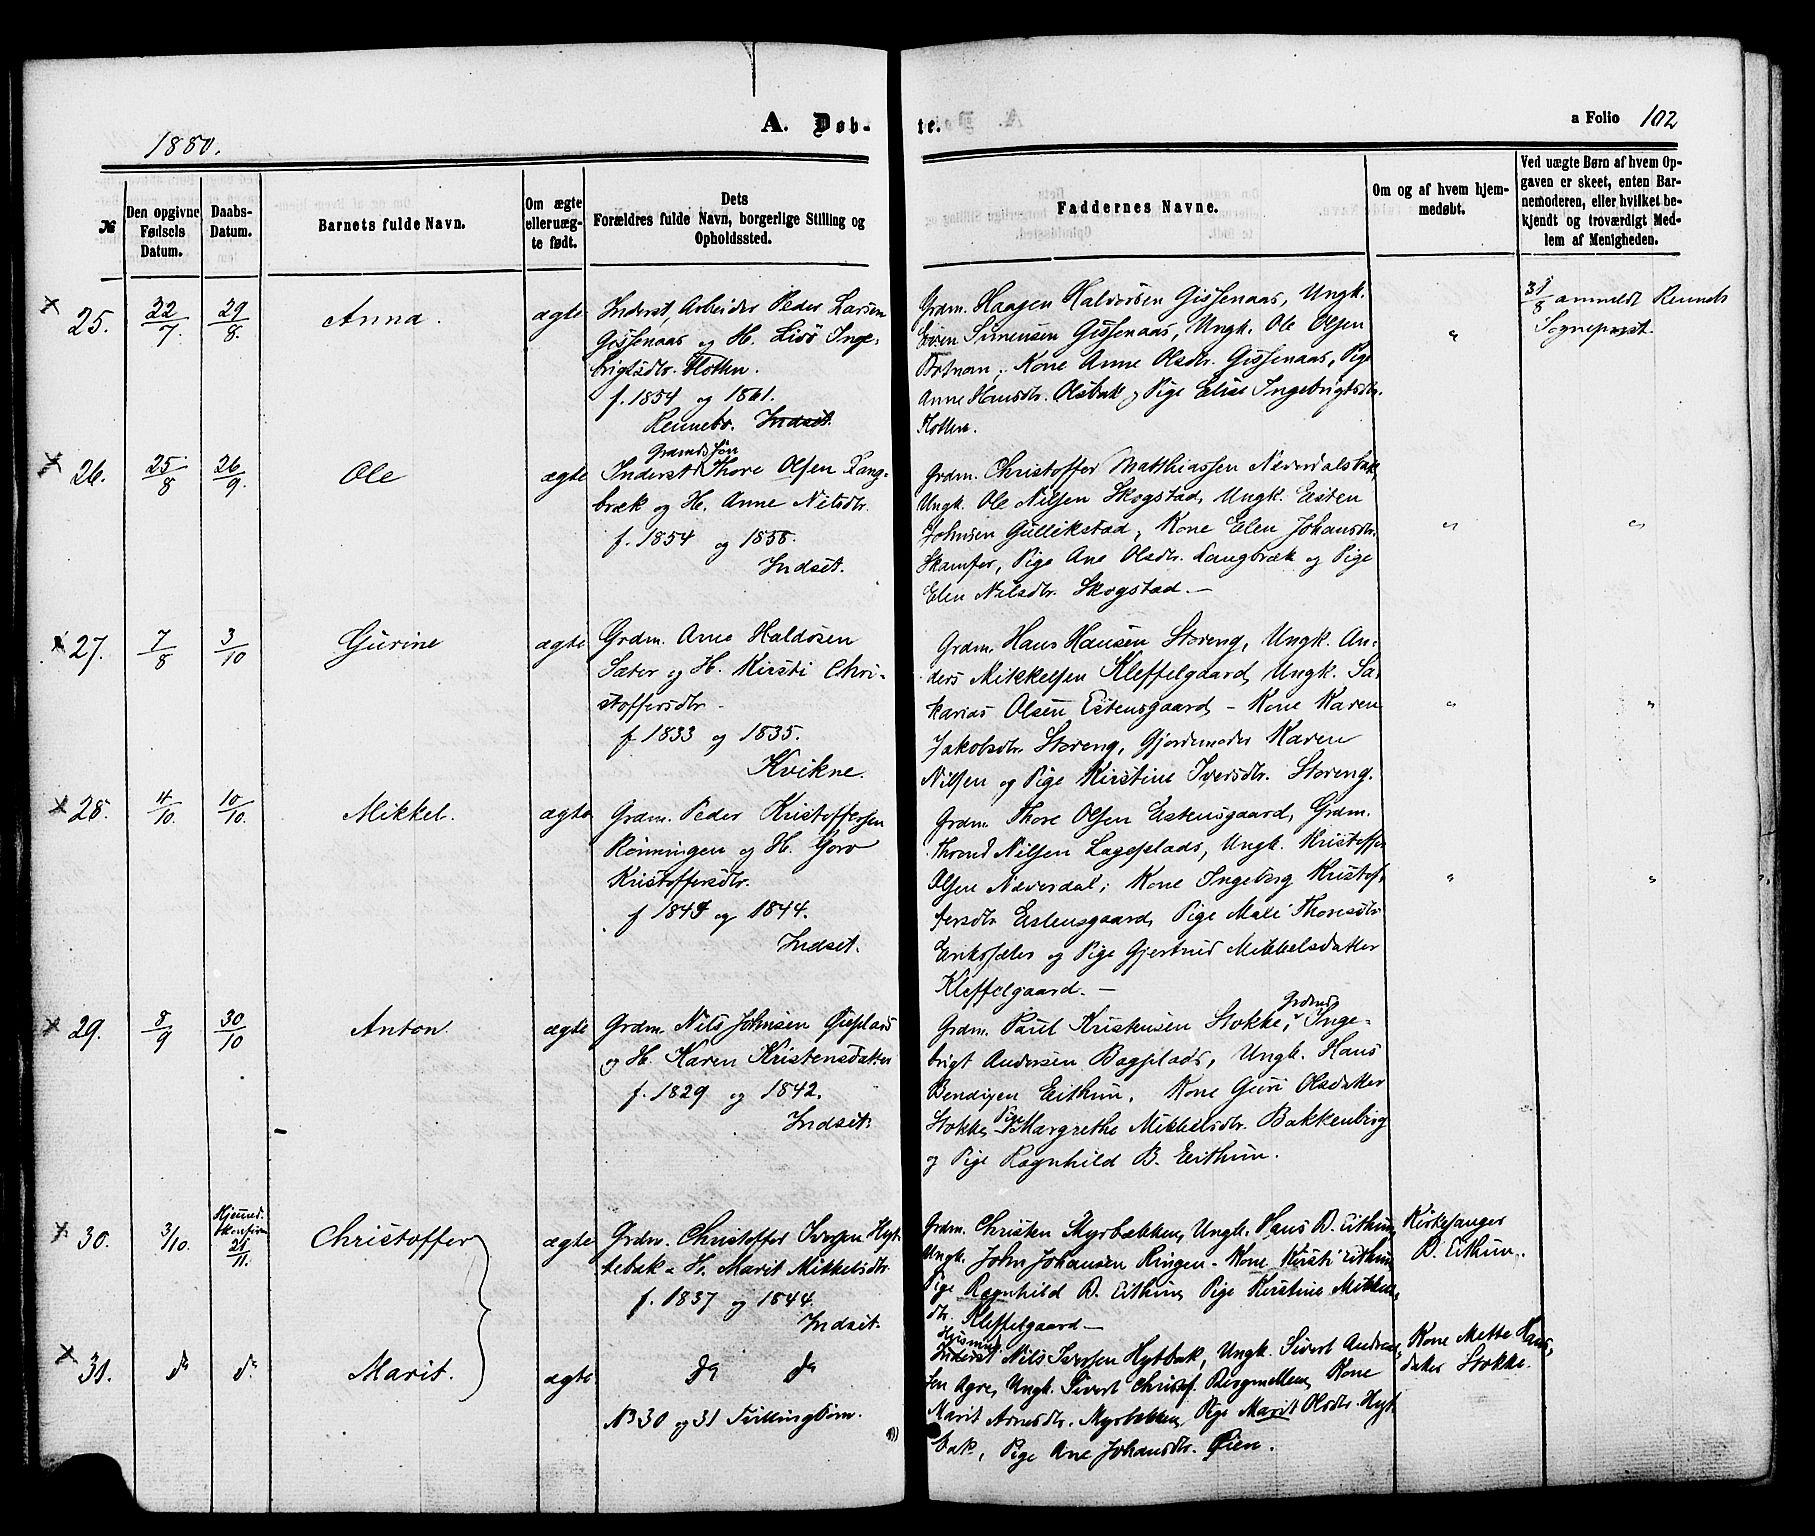 1880.
A. Døb-
te.
a Folio 102
№
Den opgivne Fødsels Datum.
Daabs-Datum.
Barnets fulde Navn.
Om ægte eller uæg-te født.
Dets Forældres fulde Navn, borgerlige Stilling og Opholdssted.
Faddernes Navne.
Om og af hvem hjem-medøbt.
Ved uægte Børn af hvem Op-gaven er skeet, enten Bar-nemoderen, eller hvilket be-kjendt og troværdigt Med-lem af Menigheden.
25. 22/7. 29/8. Anna. ægte
Inderst, Arbeider Peder Larsen
Gissenaas og H. Livö Inge-
brigtsdtr. Flotten.
f. 1854 og 1861.
Rennebo. Indset.
Grdm. Haagen Haldorsen Gissenaas, Ungk.
Sören Simensen Gissenaas, Ungk. Ole Olsen
Botnan, Kone Anne Olsdtr. Gissenaas, Pige
Anne Hansdtr. Olsbak, Pige Elise Ingebrigtsdtr.
Flotten.
"
31/8 anmeldt Rennebo
Sogneprest.
26. 25/8 26/9. Ole ægte
Gaardssøn
Inderst Thore Olsen Lang-
bræk og H. Anne Nilsdtr.
f. 1854 og 1858.
Indset.
Grdm. Christoffer Matthiassen Næverdalsbak,
Ungk. Ole Nilsen Skogstad, Ungk. Esten
Johnsen Gullikstad, Kone Elen Johansdtr.
Skamfer, Pige Ane Olsdtr. Langbræk og Pige
Elen Nilsdtr. Skogstad. —
" "
27. 7/8 3/10 Gurine ægte
Grdm. Arne Haldosen
Sæter og H. Kirsti Chri-
stoffersdtr.
f 1833 og 1835.
Kvikne.
Grdm. Hans Hansen Storeng, Ungk. An-
ders Mikkelsen Kleffelgaard, Ungk. Sa-
karias Olsen Estensgaard, - Kone Karen
Jakobsdtr. Storeng, Gjordemoder Karen
Nilsen og Pige Kirstine Iversdtr. Storeng.
" "
28. 4/10. 10/10. Mikkel. ægte
Grdm. Peder Kristoffersen
Rönningen og H. Goro
Kristoffersdtr.
f og 1844.
Indset.
Grdm. Thore Olsen Estensgaard, Grdm.
Thrond Nilsen Lageplads, Ungk. Kristoffer
Olsen Næverdal; Kone Ingeborg Kristof-
fersdtr Estensgaard, Pige Mali Thoresdtr
Eriksfæter og Pige Gjertrud Mikkelsdatter
Kleffelgaard. —
" "
29. 8/9 30/10 Anton. ægte
Grdm. Nils Johnsen Øieplads
og H. Karen Kristensdatter
f. 1829 og 1842.
Indset.
Grdm. Paul Kristensen Stokke, Grdmd. Inge-
brigt Andersen Bagplads, Ungk. Hans
Bendigen Eithun, Kone Guri Olsdatter
Stokke, Pige Margrethe Mikkelsdtr. Bakkenberg
og Pige Ragnhild B. Eithun.
30. 3/10. 21/11. Christoffer ægte
Grdm. Christoffer Iversen Hyt-
tebak & H. Marit Mikkelsdtr
f. 1837 og 1844.
Indset.
Grdm. Christen Myrbækken, Ungk. Hans B. Eithun,
Ungk. John Johansen Ringen - Kone Kirsti Eithun,
Pige Ragnhild B. Eithun, Pige Kirstine Mikkels-
dtr. Kleffelgaard —
Kirkesanger
B. Eithun.
31. do do Marit. ægte
do do
No 30 og 31 Tvillingbørn.
Husmd.
Inderst Nils Iversen Hytbak, Ungk. Sivert Andrea-
sen Agre, Ungk. Sivert Christof. Bergmellem, Kone
Marit Arnesdtr. Myrbækken, Pige Marit Olsdtr. Hyt-
bak, Pige Ane Johansdtr. Øien.
Kone Mette Hans-
datter Stokke.